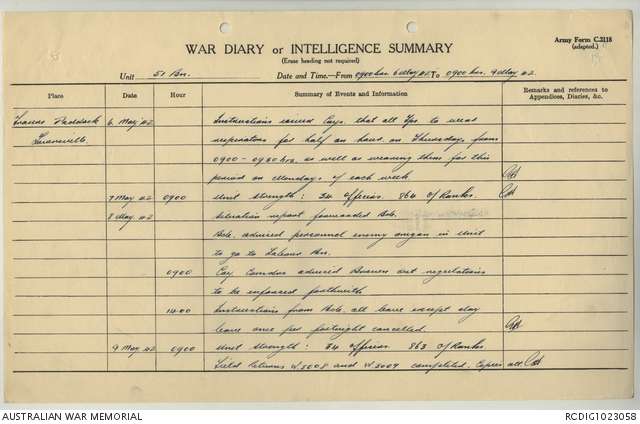 Army Form C.2118
(adapted.)
WAR DIARY or INTELLIGENCE SUMMARY
(Erase heading not required)
Unit 51 Bn. Date and Time—From 0900 hrs. 6 May 42 To 0900 hrs. 9 May 42.
Place Date Hour Summary of Events and Information Remarks and references to Appendices, Diaries, &c.
Paddock 6 May 42 Instructions issued Coys. that all Tps to wear
Townsville. respirators for half an hour on Thursdays from
0900-0930 hrs. as well as wearing them for this
period on Mondays of each week.
7 May 42 0900 Unit Strength: 34 Officers 864 O/Ranks
8 May 42 report forwarded Bde.
Bde. advised personnel enemy origin in Unit
to go to Labour Bn.
0900 Coy Comdrs advised out regulations
to be enforced forthwith
1400 Instructions from Bde. all leave except day
leave once per fortnight cancelled.
9 May 42 0900 Unit Strength: 34 Officers 863 O/Ranks
Field Returns W3008 and W3009 completed. Copies att.
AUSTRALIAN WAR MEMORIAL
RCDIG1023058